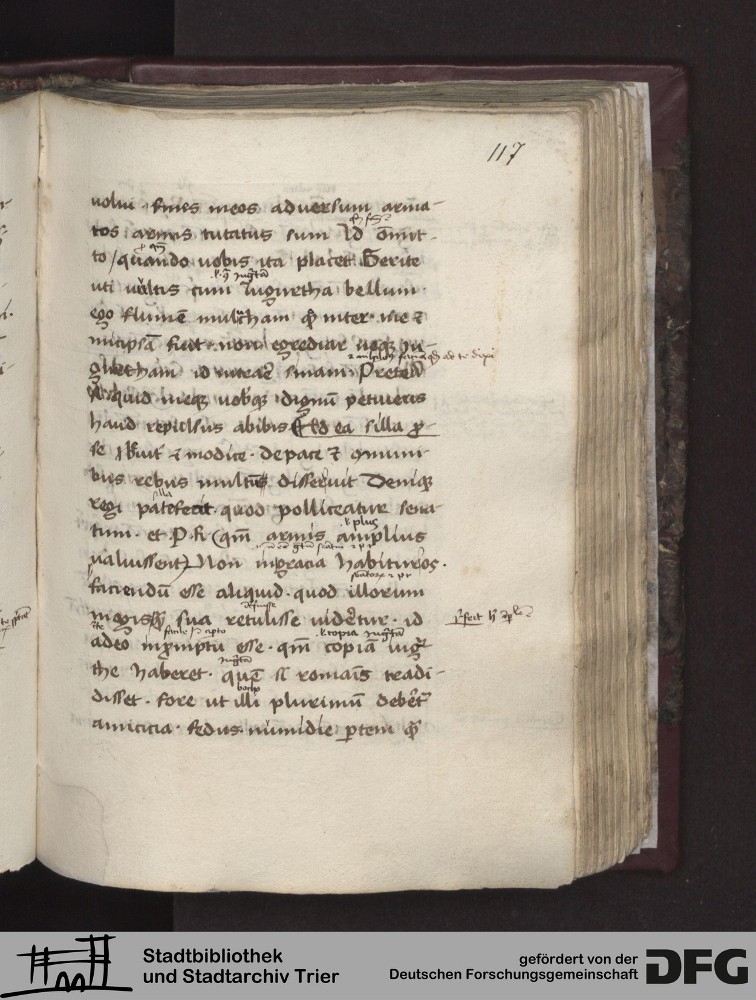 117
volui. fines meos adversum arma-
tos armis tutatus sum Id omit-
to / quando vobis ita placet Gerite
uti vultis cum Iuguretha bellum.
ego flumē mulucham q̄ inter. me ⁊
micipsā fuit. non egrediar neqꝫ Iu-
gurtham id intrare sinam. Preterea
si quid meqꝫ vobisqꝫ dignū petiveris
haud repulsus abibis. Ad ea silla p̄-
se breuit̄ ⁊ modice. de pace ⁊ cōmuni-
bus rebus multis disseruit Deniqꝫ
silla
regi patefecit. quod polliceatur sena-
tum. et P. R (qm̄ armis amplius
valuissent) Non in gracia habituros.
faciendū esse aliquid. quod illorum
magisqꝫ sua retulisse videretur. id
adeo in promptu esse. qm̄ copiā iugur-
the haberet. quē si romanis tradi-
disset. fore ut illi plurimū deberet̄
amicicia. fedus. numidie p̄tem q̄
Stadtbibliothek
und Stadtarchiv Trier
gefördert von der
Deutschen Forschungsgemeinschaft
DFG